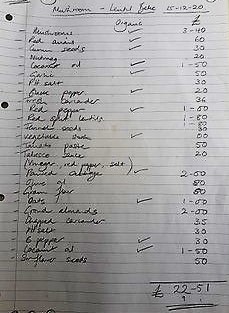 Mushroom - Lentil Bake 15-12-20
Organic £
- Mushrooms ✓ 3-40
- Red onions ✓ 60
- Cumin seeds ✓ 30
- Nutmeg 20
- Coconut oil ✓ 1-50
- Garlic ✓ 50
- Pk salt ✓ 30
- Black pepper ✓ 20
- coriander 36
- Red pepper ✓ 1-00
- Red split lentils ✓ 1-80
- Fennel seeds 30
- vegetable ✓ 00
- Tomato paste 50
- Tabasco 20
(Vinegar, red pepper, salt)
- cabbage ✓ 2-00
- Olive oil 80
- Gram flour 80
- Oats ✓ 1-00
- Ground almonds 2-00
- Chopped coriander 35
- salt ✓ 30
- pepper ✓ 30
- oil ✓ 1-50
- Sunflower seeds 50
£ 22-51